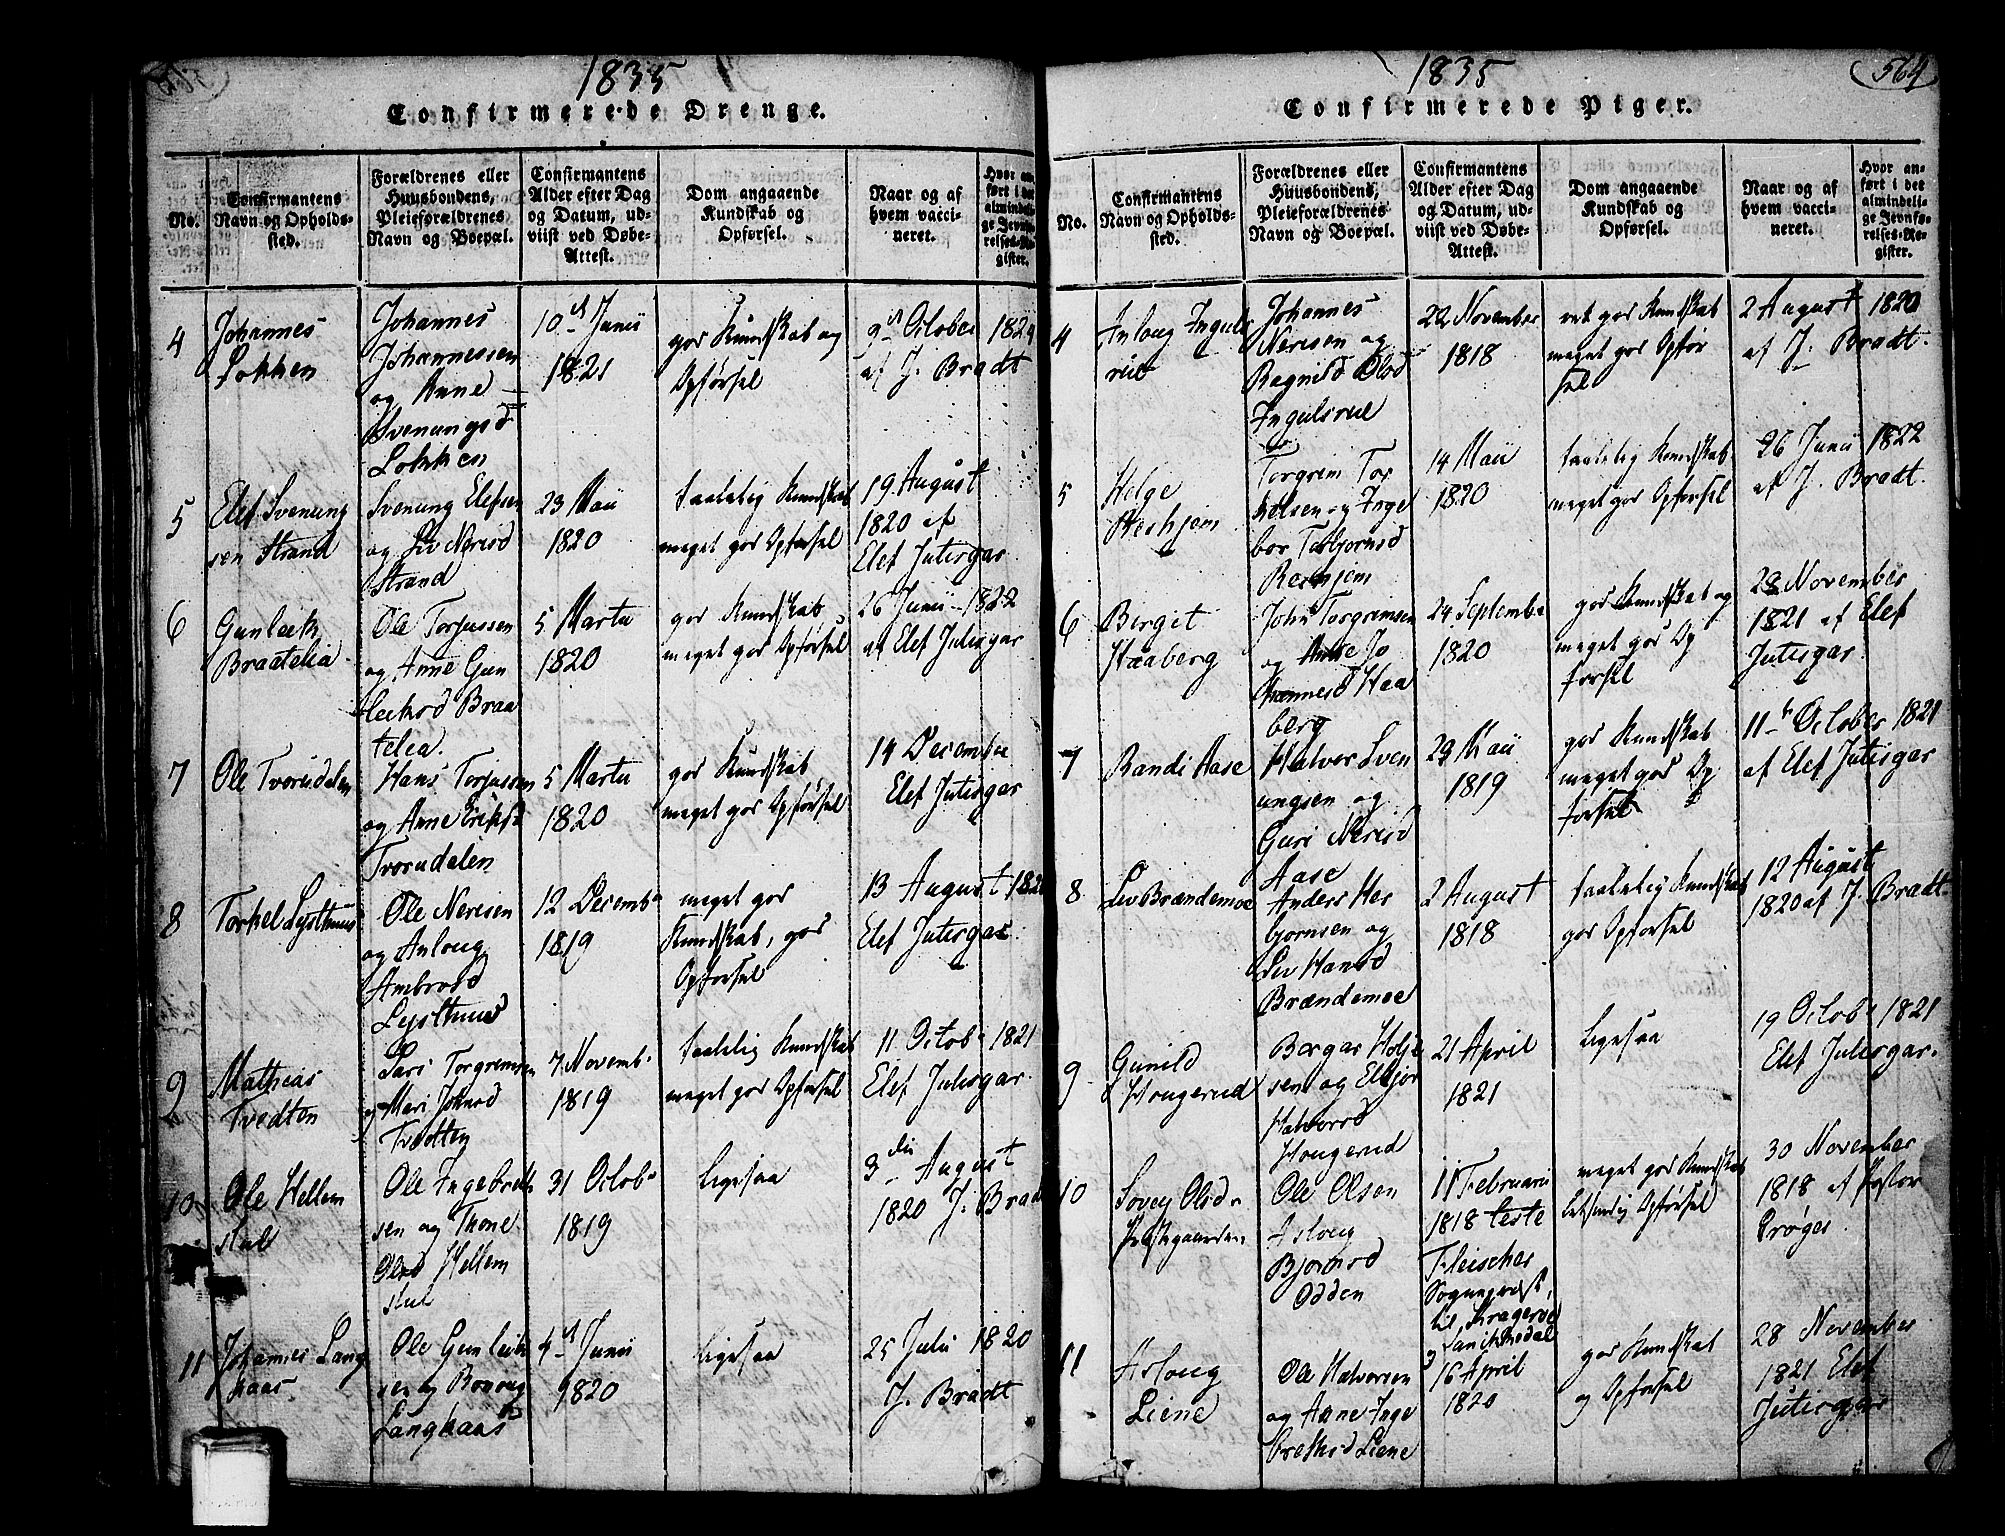 1835
Confirmerede Drenge.
No.
Confirmantens
Navn og Opholds-
sted.
Forældrenes eller
Huusbondens,
Pleieforældrenes
Navn og Boepæl.
Confirmantens
Alder efter Dag
og Datum, ud-
viist ved Døbe-
Attest.
Dom angaaende
Kundskab og
Opførsel.
Naar og af
hvem vacci-
neret.
Hvor an-
ført i det
almindeli-
ge Jevnfø-
relses-Re-
gister.
4
Johannes
Lokken
Johannes
Johannessen
og Anne
Svenungsd
Lokken
10 Junii
1821
gor Kundskab og
Opførsel
9 Octobe 1824
af J. Bradt
5
Elef Svenung
sen Strand
Svenung Elefsen
og Liv Nerisd
Strand
23 Maii
1820
taalelig Kundskab
meget gor Opførsel
19 August
1820 af
Elef Jutisgar
6
Gunleik
Braatelia
Ole Torjussen
og Anne Gun
leiksd Braa
telia.
5 Marta
1820
gor Kundskab
meget gor Opførsel
26 Junii 1822
af Elef Jutisgar
7
Ole Tvorudalen
Hans Torjussen
og Anne Eriksd
Tvorudalen
5 Marta
1820
gor Kundskab
meget gor Opførsel
14 Decembe
Elef Jutisgar
8
Torkel Lysthuus
Ole Nerisen
og Anloug
Ambrosd
Lysthuus
12 Decemb
1819
meget gor
Kundskab, gor
Opførsel
13 August 182
Elef Jutisgar
9
Mathias
Tvedten
Lars Torgrimsen
og Mari Johnsd
Tvedten
7 Novemb
1819
taalelig Kundskab
meget gor Opførsel
11 Octob 1821
Elef Jutisgar
10
Ole Hellem
stul
Ole Ingebrett
sen og Thone
Olsd Hellem
stul
31 Octob
1819
ligesaa
3 August
1820 J. Bradt
11
Johannes Lang
kaas.
Ole Gunleik
sen og Boroug
Langkaas
4 Junii
1820
ligesaa
25 Julii 1820
J. Bradt
1835
564
Confirmerede Piger.
No.
Confirmantens
Navn og Opholds-
sted.
Forældrenes eller
Huusbondens,
Pleieforældrenes
Navn og Boepæl.
Confirmantens
Alder efter Dag
og Datum, ud-
viist ved Døbe-
Attest.
Dom angaaende
Kundskab og
Opførsel.
Naar og af
hvem vacci-
neret.
Hvor an-
ført i det
almindeli-
ge Jevnfø-
relses-Re-
gister.
4
Anloug Inguls
rue
Johannes
Nerisen og
Ragnild Olsd
Ingulsrue
22 November
1818
ret gor Kundskab
meget gor Opfør
sel
2 August 1820
af J. Bradt.
5
Helge
Reshjem
Torgrim Tor
kelsen og Inge
bor Torbjornsd
Reshjem
14 Maii
1820
taalelig Kundskab
meget gor Opførsel
26 Junii 1822
af J. Bradt.
6
Birgit
Haaberg
John Torgrimsen
og Anne Jo
hannesd Haa
berg
24 Septembe
1820
gor Kundskab og
meget gor Op
førsel
28 November
1821 af Elef
Jutisgar
7
Randi Aase
Halvor Sven
ungsen og
Guri Nerisd
Aase
29 Maii
1819
gor Kundskab
meget gor Op
førsel
11 October 1821
af Elef Jutisgar
8
Liv Brændemoe
Anders Her
bjornsen og
Liv Hansd
Brændemoe
2 August
1818
taalelig Kundskab
gor Opførsel
12 August
1820 af J. Bradt.
9
Gunild
Hougerud
Bergar Holje
sen og Elbjør
Halvorsd
Hougerud
21 April
1821
ligesaa
19 Octob 1821
Elef Jutisgar.
10
Sovey Olsd
Prestegaarden
Ole Olsen
Asloug
Bjornsd
Odden
11 Februarii
1818 teste
Fleischer
Sogneprest
til Kragerøe
og Sanichedal
meget gor Kundskab
Opførsel
30 November
1818 af Pastor
Crøger
11
Asloug
Liene
Ole Halvorsen
og Anne Inge
bretsd Liene
16 April
1820
gor Kundskab
og Opførsel
28 November
1821 Elef
Jutisgar